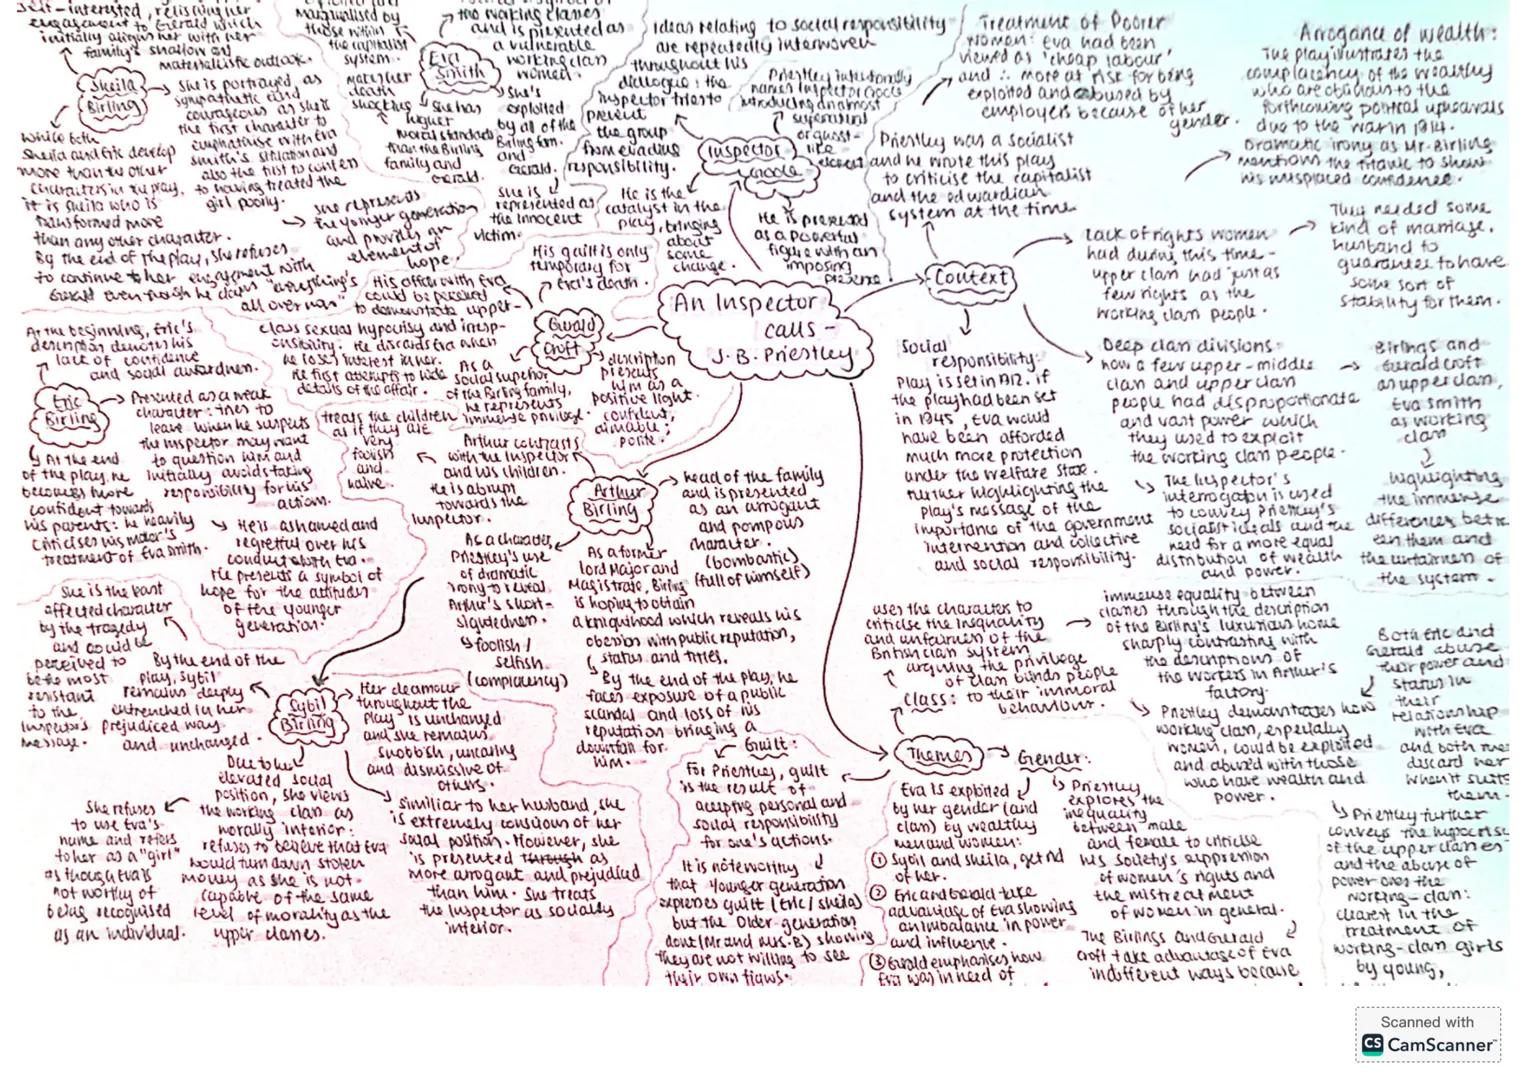 An Inspector
calls -
J.B. Priestley
Sheila
Birling
self-interested, relishing her
engagement to Gerald which
initially aligns her with her
family's shallow and
materialistic outlook.
She is portrayed as
sympathetic and
courageous as she is
the first character to
emphathise with Eva
Smith's situation and
also the first to confess
to having treated the
girl poorly.
She represents
the younger generation
and provides an
element of
hope.
While both
Sheila and Eric develop
more than the other
characters in the play,
it is Sheila who is
transformed more
than any other character.
By the end of the play, she refuses
to continue her engagement with
Gerald even though he claims "everything's
all over now"
Eva
Smith
marginalised by
those within
the capitalist
system.
makes her
death
shocking
the working classes
and is presented as
a vulnerable
working class
women.
She has
higher
moral standards
than the Birling
family and
Gerald.
She's
exploited
by all of the
Birling fam.
and
Gerald.
She is
represented as
the innocent
victim.
Inspector
Goole
Ideas relating to social responsibility
are repeatedly interwoven
throughout his
dialogue: the
inspector tries to
prevent
the group
from evading
responsibility.
Priestley intentionally
names Inspector Goole
introducing an almost
supernatural
or ghost-
like
element
He is the
catalyst in the
play, bringing
about
some
change.
He is presented
as a powerful
figure with an
imposing
presence
Context
Treatment of Poorer
women: Eva had been
viewed as 'cheap labour'
and ∴ more at risk for being
exploited and abused by
employers because of her
gender.
Arrogance of wealth:
The play illustrates the
complacency of the wealthy
who are oblivious to the
forthcoming political upheavals
due to the war in 1914.
Dramatic irony as Mr. Birling
mentions the titanic to show
his misplaced confidence.
Priestley was a socialist
and he wrote this play
to criticise the capitalist
and the edwardian
system at the time
Lack of rights women
had during this time -
upper class had just as
few rights as the
working class people.
They needed some
kind of marriage,
husband to
guarantee to have
some sort of
stability for them.
Social
responsibility:
Play is set in 1912. If
the play had been set
in 1945, Eva would
have been afforded
much more protection
under the welfare state.
further highlighting the
play's message of the
importance of the government
intervention and collective
and social responsibility.
Deep class divisions
how a few upper-middle
class and upper class
people had disproportionate
and vast power which
they used to exploit
the working class people.
Birlings and
Gerald Croft
as upper class,
Eva Smith
as working
class
Highlighting
the immense
differences betw-
een them and
the unfairness of
the system.
The Inspector's
interrogation is used
to convey Priestley's
socialist ideals and the
need for a more equal
distribution of wealth
and power.
Gerald
Croft
His guilt is only
temporary for
Eva's death.
His affair with Eva
could be perceived
to demonstrate upper-
class sexual hypocrisy and irresp-
onsibility. He discards Eva when
he loses interest in her.
He first attempts to hide
details of the affair.
As a
social superior
of the Birling family,
he represents
immense privilege.
description
presents
him as a
positive light.
confident,
aimable;
polite.
Eric
Birling
At the beginning, Eric's
description denotes his
lack of confidence
and social awkwardness.
Presented as a weak
character: tries to
leave when he suspects
the Inspector may want
to question him and
initially avoids taking
responsibility for his
actions.
At the end
of the play, he
becomes more
confident towards
his parents: he heavily
criticises his mother's
treatment of Eva Smith.
He is ashamed and
regretful over his
conduct with Eva.
He presents a symbol of
hope for the attitudes
of the younger
generation.
Arthur
Birling
treats the children
as if they are
very
foolish
and
naive.
Arthur contrasts
with the Inspector
and his children.
He is abrupt
towards the
Inspector.
head of the family
and is presented
as an arrogant
and pompous
character.
(bombastic)
(full of himself)
As a character,
Priestley's use
of dramatic
irony to reveal
Arthur's short-
sigtedness.
foolish/
selfish.
(complacency)
As a former
lord Major and
Magistrate, Birling
is hoping to obtain
a knighthood which reveals his
obession with public reputation,
status and titles.
By the end of the play, he
faces exposure of a public
scandal and loss of his
reputation bringing a
downfall for
him.
Sybil
Birling
She is the least
affected character
by the tragedy
and could be
perceived to
be the most
resistant
to the
Inspector's
message.
By the end of the
play, Sybil
remains deeply
entrenched in her
prejudiced way
and unchanged.
Her demeanour
throughout the
play is unchanged
and she remains
snobbish, uncaring
and dismissive of
others.
Due to her
elevated social
position, she views
the working class as
morally inferior:
refuses to believe that Eva
would turn down stolen
money as she is not
capable of the same
level of morality as the
upper classes.
She refuses
to use Eva's
name and refers
to her as a "girl"
as though Eva is
not worthy of
being recognised
as an individual.
Similiar to her husband, she
is extremely conscious of her
social position. However, she
is presented through as
more arrogant and prejudiced
than him. She treats
the Inspector as socially
inferior.
Themes
Guilt:
For Priestley, guilt
is the result of
accepting personal and
social responsibility
for one's actions.
It is noteworthy
that younger generation
expresses guilt (Eric/Sheila)
but the Older generation
dont (Mr and Mrs. B) showing
they are not willing to see
their own flaws.
Class:
uses the character to
criticise the inequality
and unfairness of the
British class system
arguing the privilege
of class blinds people
to their immoral
behaviour.
immense equality between
classes through the description
of the Birling's luxurious home
sharply contrasting with
the descriptions of
the workers in Arthur's
factory.
Priestley demonstrates how
working class, especially
women, could be exploited
and abused with those
who have wealth and
power.
Both Eric and
Gerald abuse
their power and
status in
their
relationship
with Eva
and both men
discard her
when it suits
them.
Gender:
Eva is exploited
by her gender (and
class) by wealthy
men and women:
① Sybil and Sheila, get rid
of her.
② Eric and Gerald take
advantage of Eva showing
an imbalance in power
and influence.
③ Gerald emphasises how
Eva was in need of
Priestley
explores the
inequality
between male
and female to criticise
his society's suppression
of women's rights and
the mistreatment
of women in general.
The Birlings and Gerald
Croft take advantage of Eva
in different ways because
Priestley further
conveys the impact
of the upper classes
and the abuse of
power over the
working-class:
clearest in the
treatment of
working-class girls
by young,
Scanned with
CS CamScanner